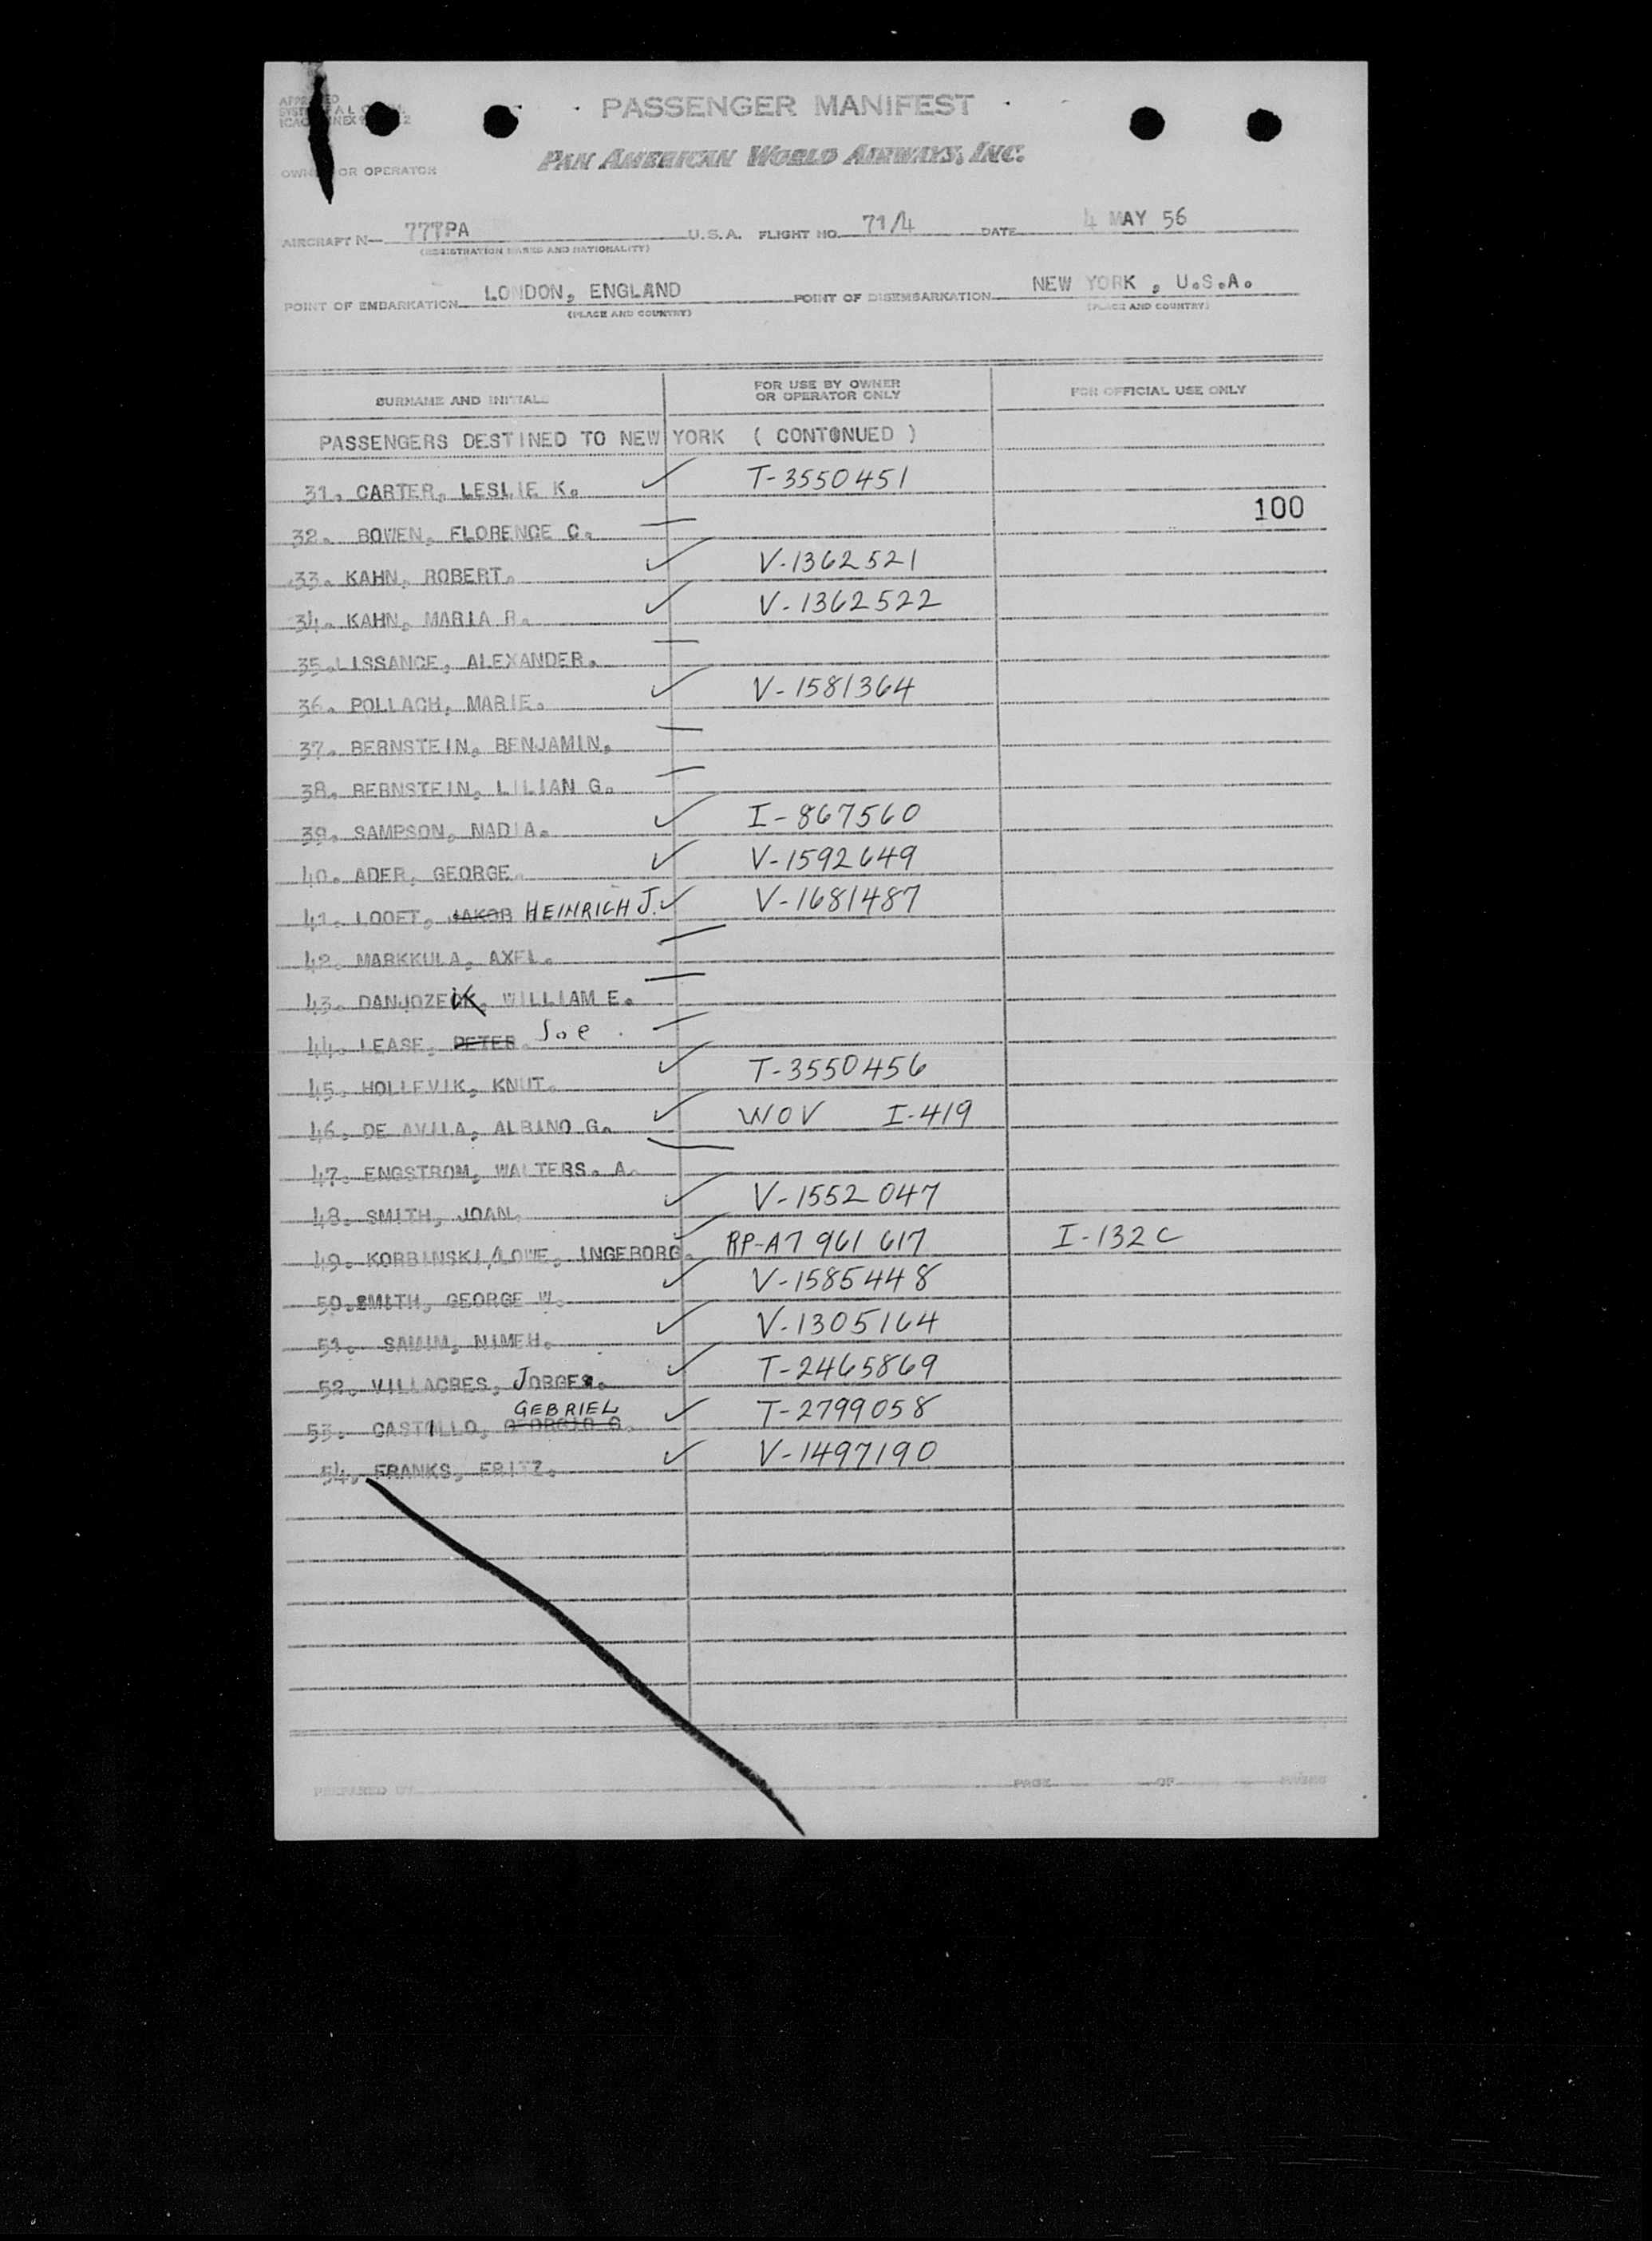 PASSENGER MANIFEST
PAN AMERICAN WORLD AIRWAYS, INC.
OR OPERATOR
AIRCRAFT N— 77TPA U.S.A. FLIGHT NO. 71/4 DATE 4 MAY 56
(REGISTRATION MARKS AND NATIONALITY)
POINT OF EMBARKATION LONDON, ENGLAND POINT OF DISEMBARKATION NEW YORK , U.S.A.
(PLACE AND COUNTRY) (PLACE AND COUNTRY)
SURNAME AND INITIALS FOR USE BY OWNER OR OPERATOR ONLY FOR OFFICIAL USE ONLY
PASSENGERS DESTINED TO NEW YORK ( CONTONUED )
31. CARTER, LESLIE K. ✓ T-3550451
100
32. BOWEN, FLORENCE C. —
33. KAHN, ROBERT. ✓ V-1362521
34. KAHN, MARIA R. ✓ V-1362522
35. LISSANCE, ALEXANDER. —
36. POLLACH, MARIE. ✓ V-1581364
37. BERNSTEIN, BENJAMIN. —
38. BERNSTEIN, LILIAN G. —
39. SAMPSON, NADIA. ✓ I-867560
40. ADER, GEORGE. ✓ V-1592649
41. LOOET, JAKOB HEINRICH J. ✓ V-1681487
42. MARKKULA, AXEL. —
43. DANJOZEK, WILLIAM E. —
44. LEASE, PETER. Joe —
45. HOLLEVIK, KNUT. ✓ T-3550456
46. DE AVILA, ALBINO G. ✓ WOV I-419
47. ENGSTROM, WALTERS. A. —
48. SMITH, JOAN. ✓ V-1552047
49. KORBINSKI/LOWE, INGEBORG. ✓ RP-A7 961 617 I-132 C
50. SMITH, GEORGE W. ✓ V-1585448
51. SAMIM, NIMEH. ✓ V-1305164
52. VILLACRES, JORGE. ✓ T-2465869
53. CASTILLO, GEORGIO G. GEBRIEL ✓ T-2799058
54. FRANKS, FRITZ. ✓ V-1497190
PREPARED BY PAGE OF PAGES